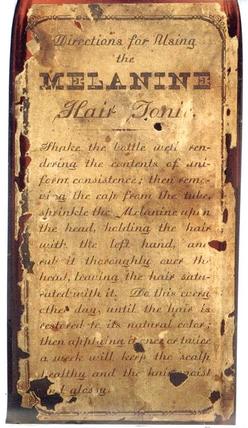 Directions for Using
the
MELANINE
Hair Tonic.
Shake the bottle well ren-
dering the contents of uni-
form consistence; then remo-
ving the cap from the tube,
sprinkle the Melanine upon
the head, holding the hair
with the left hand, an
rub it thoroughly over th
head, leaving the hair satu-
rated with it. Do this every
other day, until the hair is
restored to its natural color;
then applying it once or twice
a week will keep the scalp
healthy and the hair moist
and glossy.